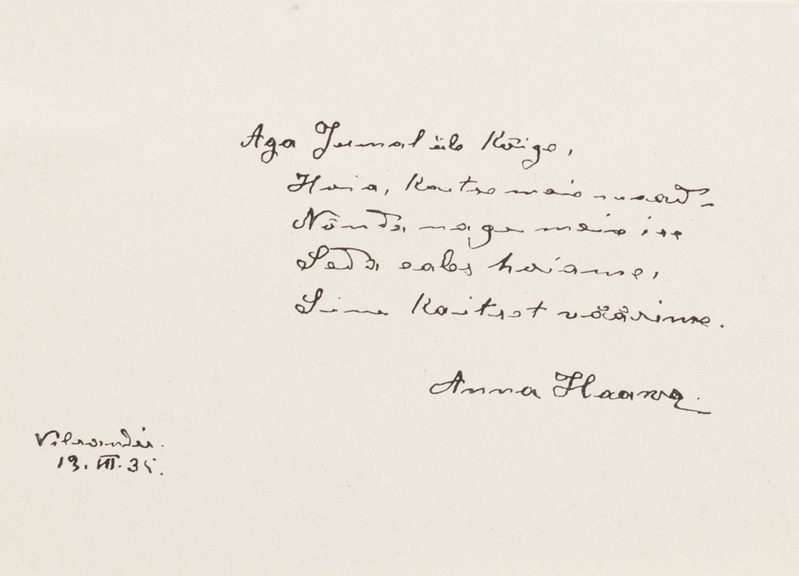 Aga Jumal üle kõige,
Hoia, kaitse meie maad –
Nõnda nagu meie ise
Seda eales hoiame,
Sinu kaitset väärime.
Anna Haava
13. III. 35.